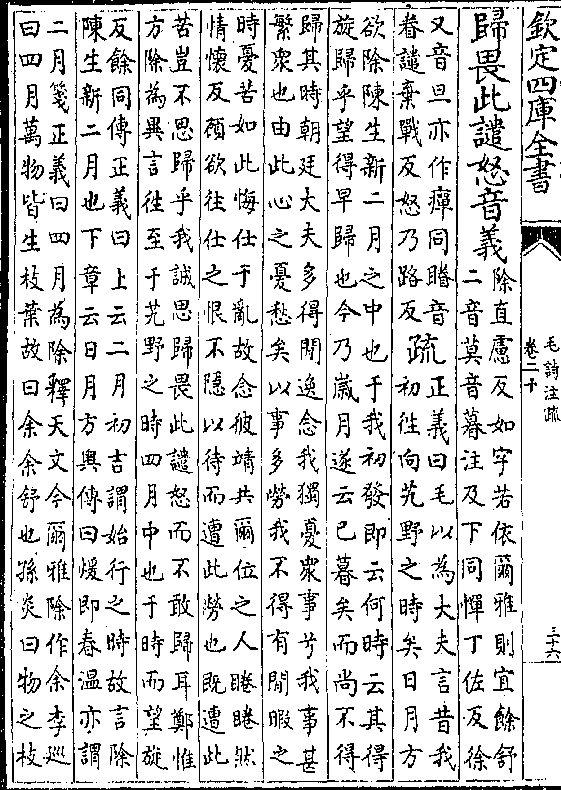 欽定四庫全書
毛詩注疏
卷二十
三十六
歸畏此譴怒音義
除直慮反如字若依爾雅則宜餘舒
二音莫音暮注及下同憚丁佐反徐
又音旦亦作癉同睠音
眷譴棄戰反怒乃路反
疏
正義曰毛以為大夫言昔我
初往向艽野之時矣日月方
欲除陳生新二月之中也于我初發即云何時云其得
旋歸乎望得早歸也今乃嵗月遂云已暮矣而尚不得
歸其時朝廷大夫多得閒逸念我獨憂衆事兮我事甚
繁衆也由此心之憂愁矣以事多勞我不得有閒暇之
時憂苦如此悔仕于亂故念彼靖共爾位之人睠睠然
情懷反顧欲往仕之恨不隱以待而遭此勞也既遭此
苦豈不思歸乎我誠思歸畏此譴怒而不敢歸耳鄭惟
方除為異言往至于艽野之時四月中也于時而望旋
反餘同傳正義曰上云二月初吉謂始行之時故言除
陳生新二月也下章云日月方奥傳曰煖即春温亦謂
二月箋正義曰四月為除釋天文今爾雅除作余李巡
曰四月萬物皆生枝葉故曰余余舒也孫炎曰物之枝